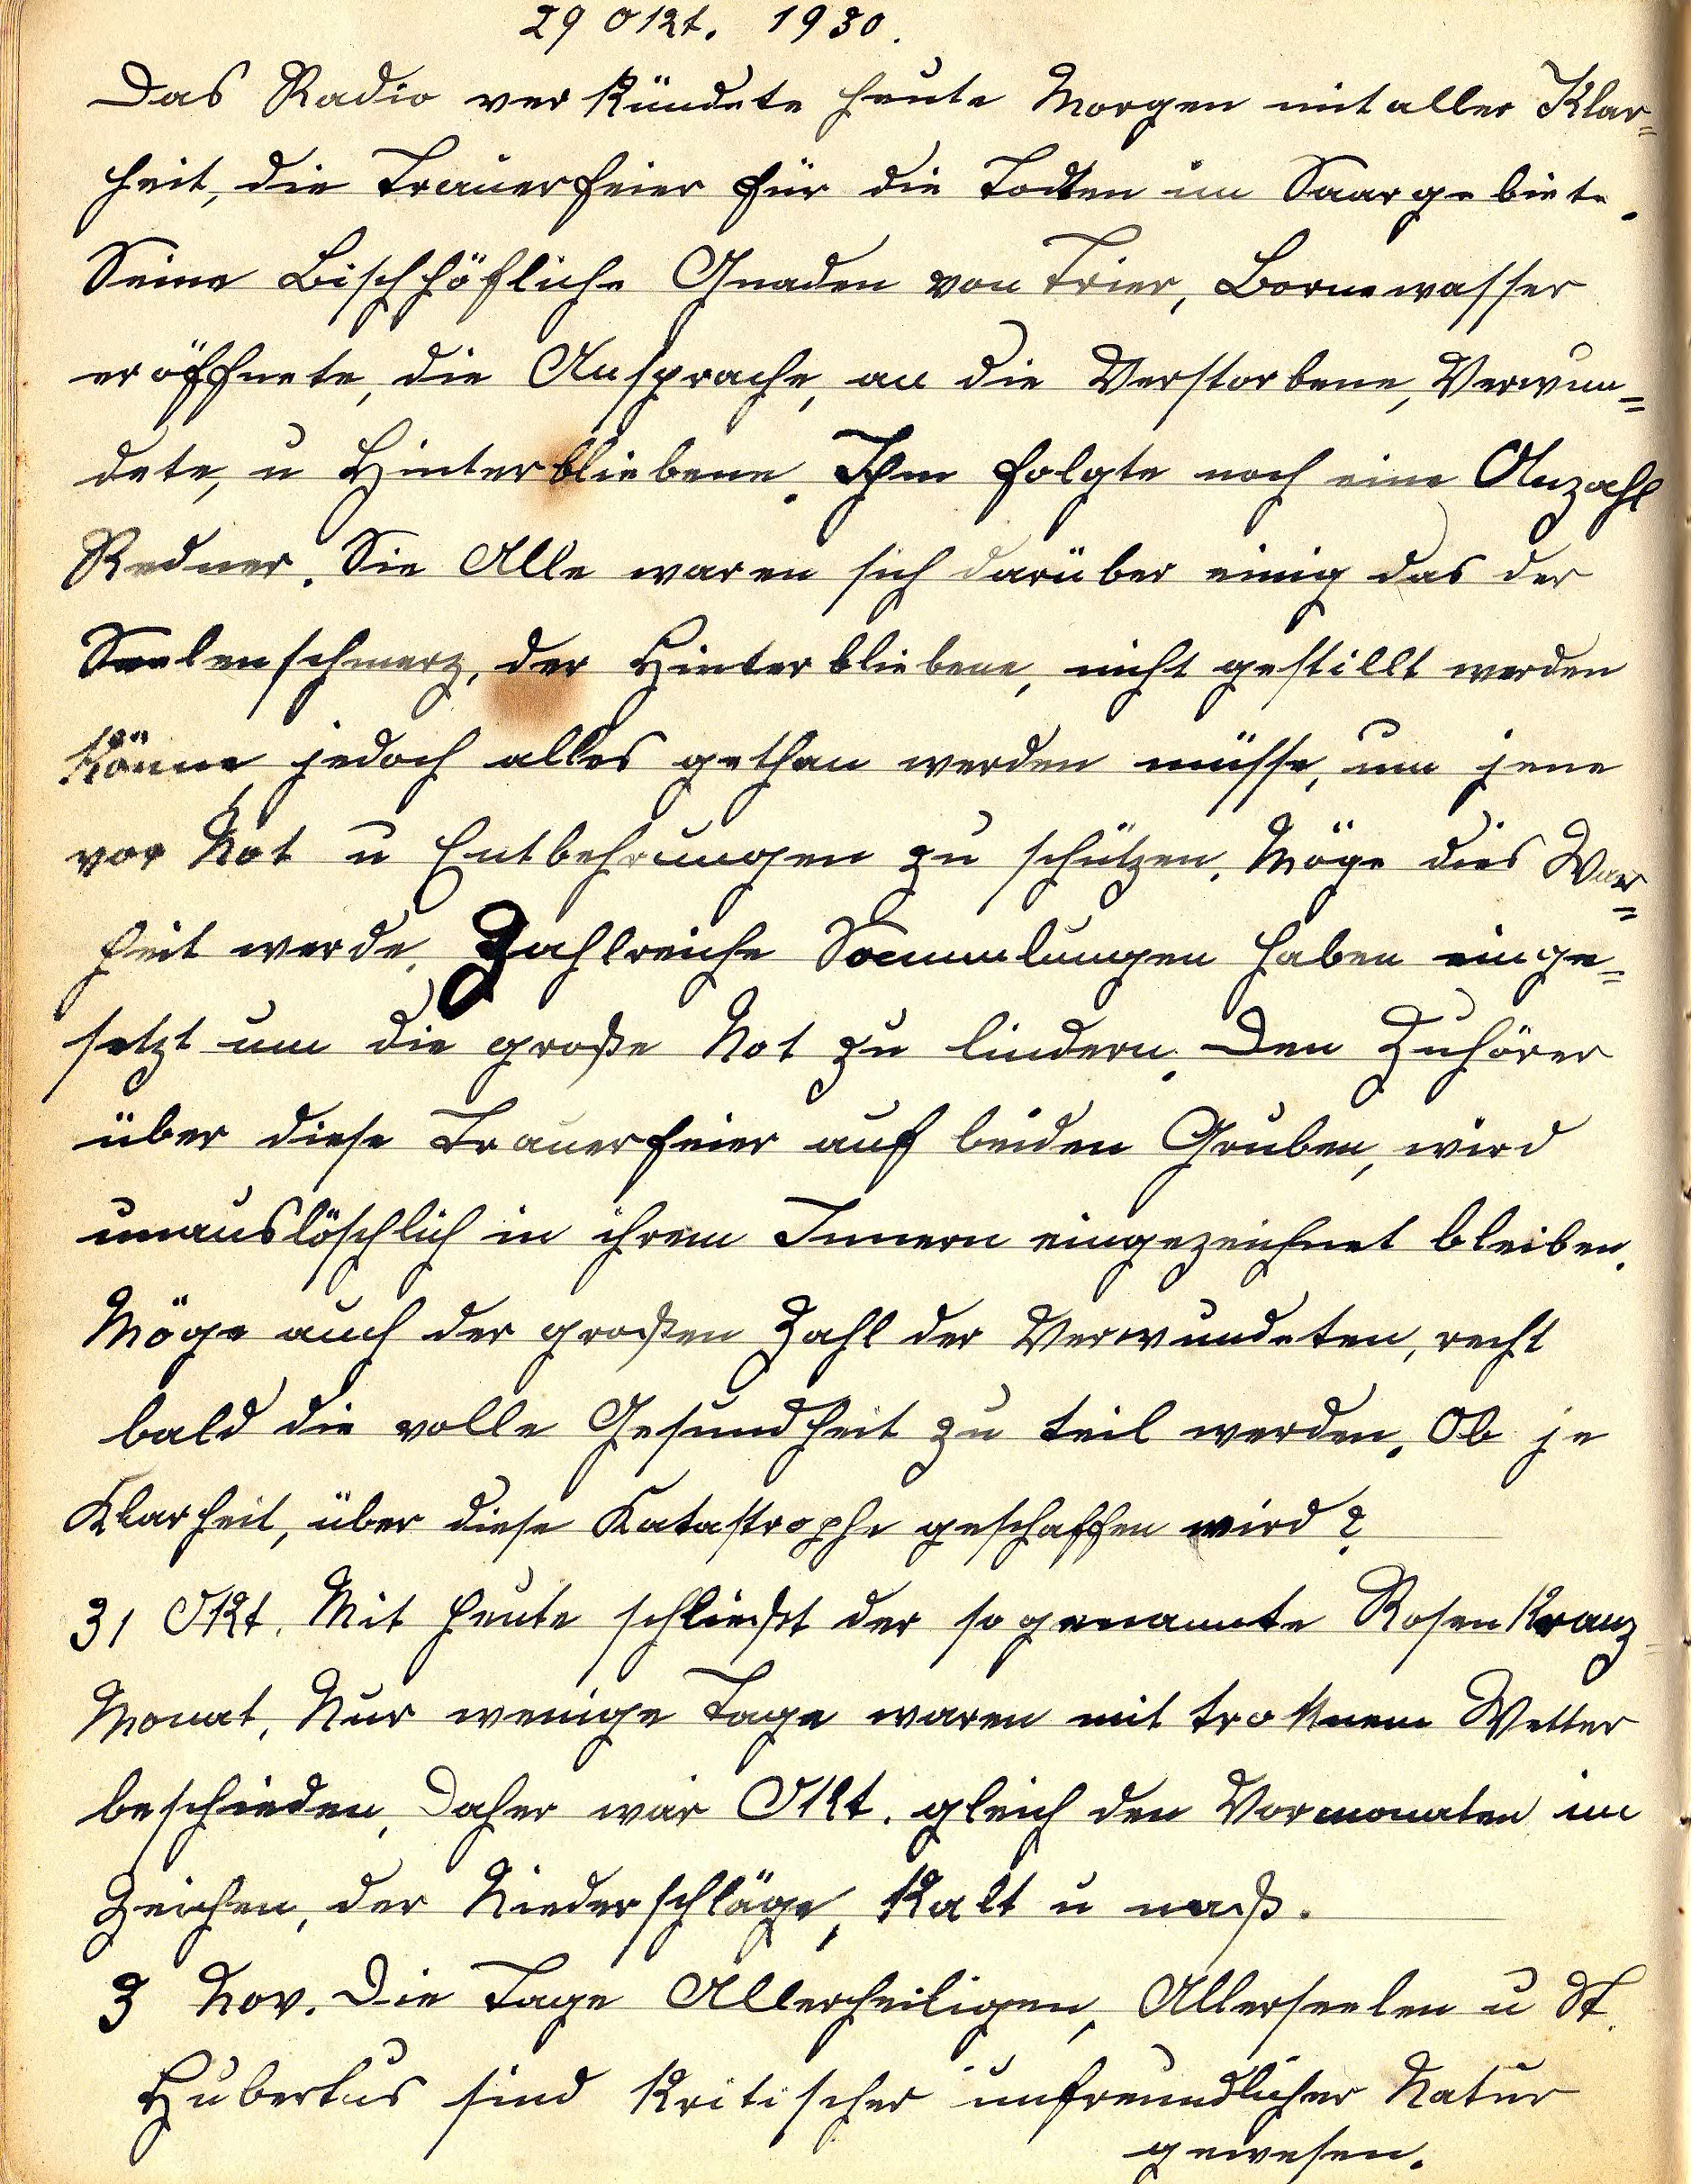 29 Okt. 1930.
Das Radio verkündete heute Morgen mit aller Klar=
heit, die Trauerfeier für die Todten im Saargebiete.
Seine Bischhöfliche Gnaden von Trier, Bornewasser
eröffnete, die Ansprache, an die Verstorbene, Verwun=
dete, u Hinterbliebene. Ihm folgte noch eine Anzahl
Redner. Sie Alle waren sich darüber einig das der
Seelenschmerz, der Hinterbliebene, nicht gestillt werden
könne, jedoch alles gethan werden müsse, um jene
vor Not u Entbehrungen zu schützen. Möge dies War=
heit werde. Zahlreiche Sammlungen haben einge=
setzt um die große Not zu lindern. Den Zuhörer
über diese Trauerfeier auf beiden Gruben, wird
unauslöschlich in ihrem Innern eingezeichnet bleiben.
Möge auch der großen Zahl der Verwundeten, recht
bald die volle Gesundheit zu teil werden. Ob je
Klarheit, über diese Katastrophe geschaffen wird?
31 Okt. Mit heute schließt der sogenannte Rosenkranz=
Monat. Nur wenige Tage waren mit troknem Wetter
beschieden, Daher war Okt. gleich den Vormonaten im
Zeichen, der Niederschläge, kalt u naß.
3 Nov. Die Tage Allerheiligen, Allerseelen u St.
Hubertus sind kritischer unfreundlicher Natur
gewesen.